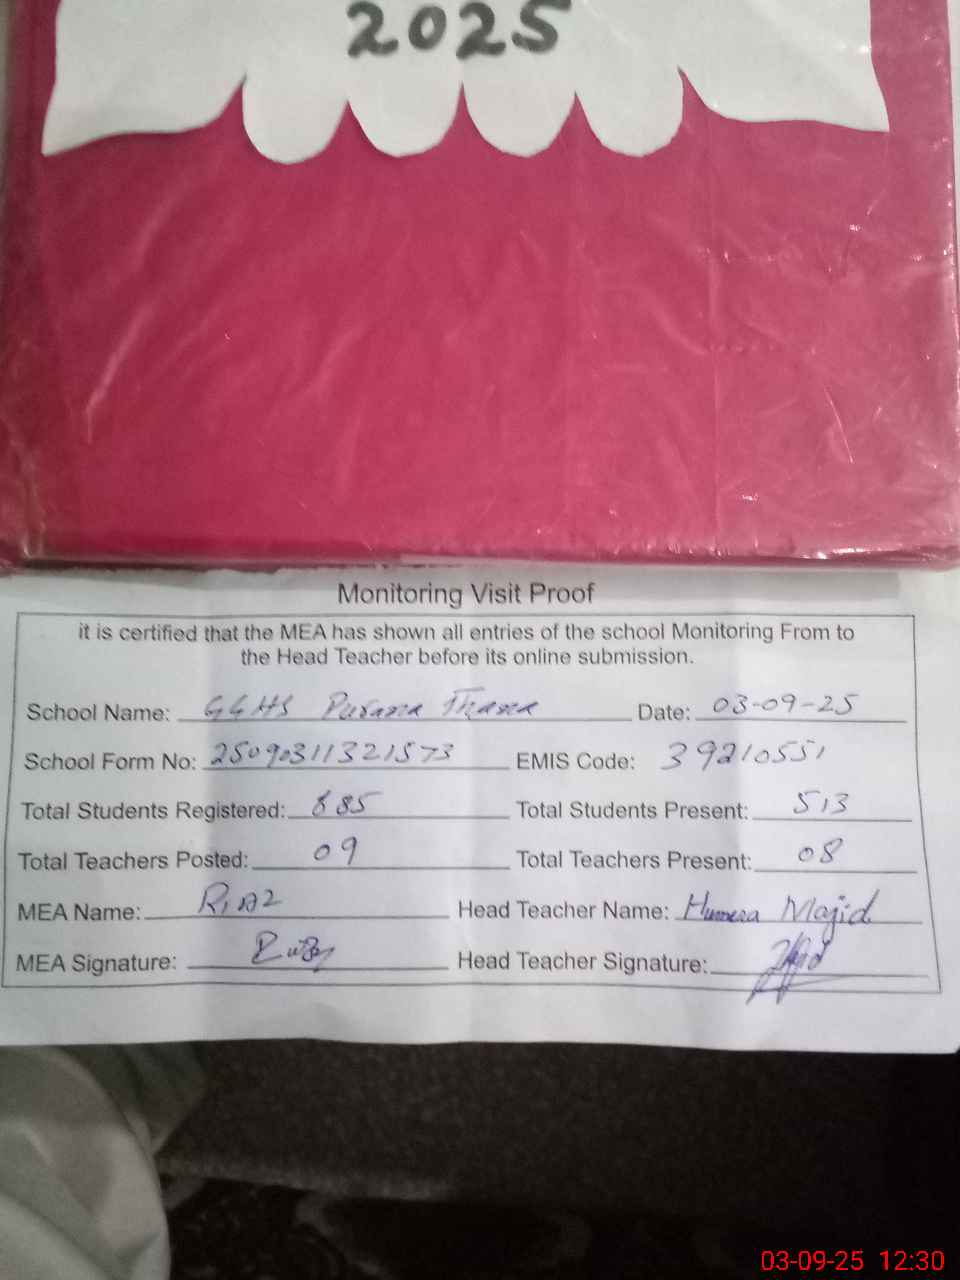 2025
Monitoring Visit Proof
it is certified that the MEA has shown all entries of the school Monitoring From to
the Head Teacher before its online submission.
School Name: GGHS Purana Thana Date: 03-09-25
School Form No: 25090311321573 EMIS Code: 39210551
Total Students Registered: 885 Total Students Present: 513
Total Teachers Posted: 09 Total Teachers Present: 08
MEA Name: Riaz Head Teacher Name: Humera Majid
MEA Signature: Head Teacher Signature:
03-09-25 12:30